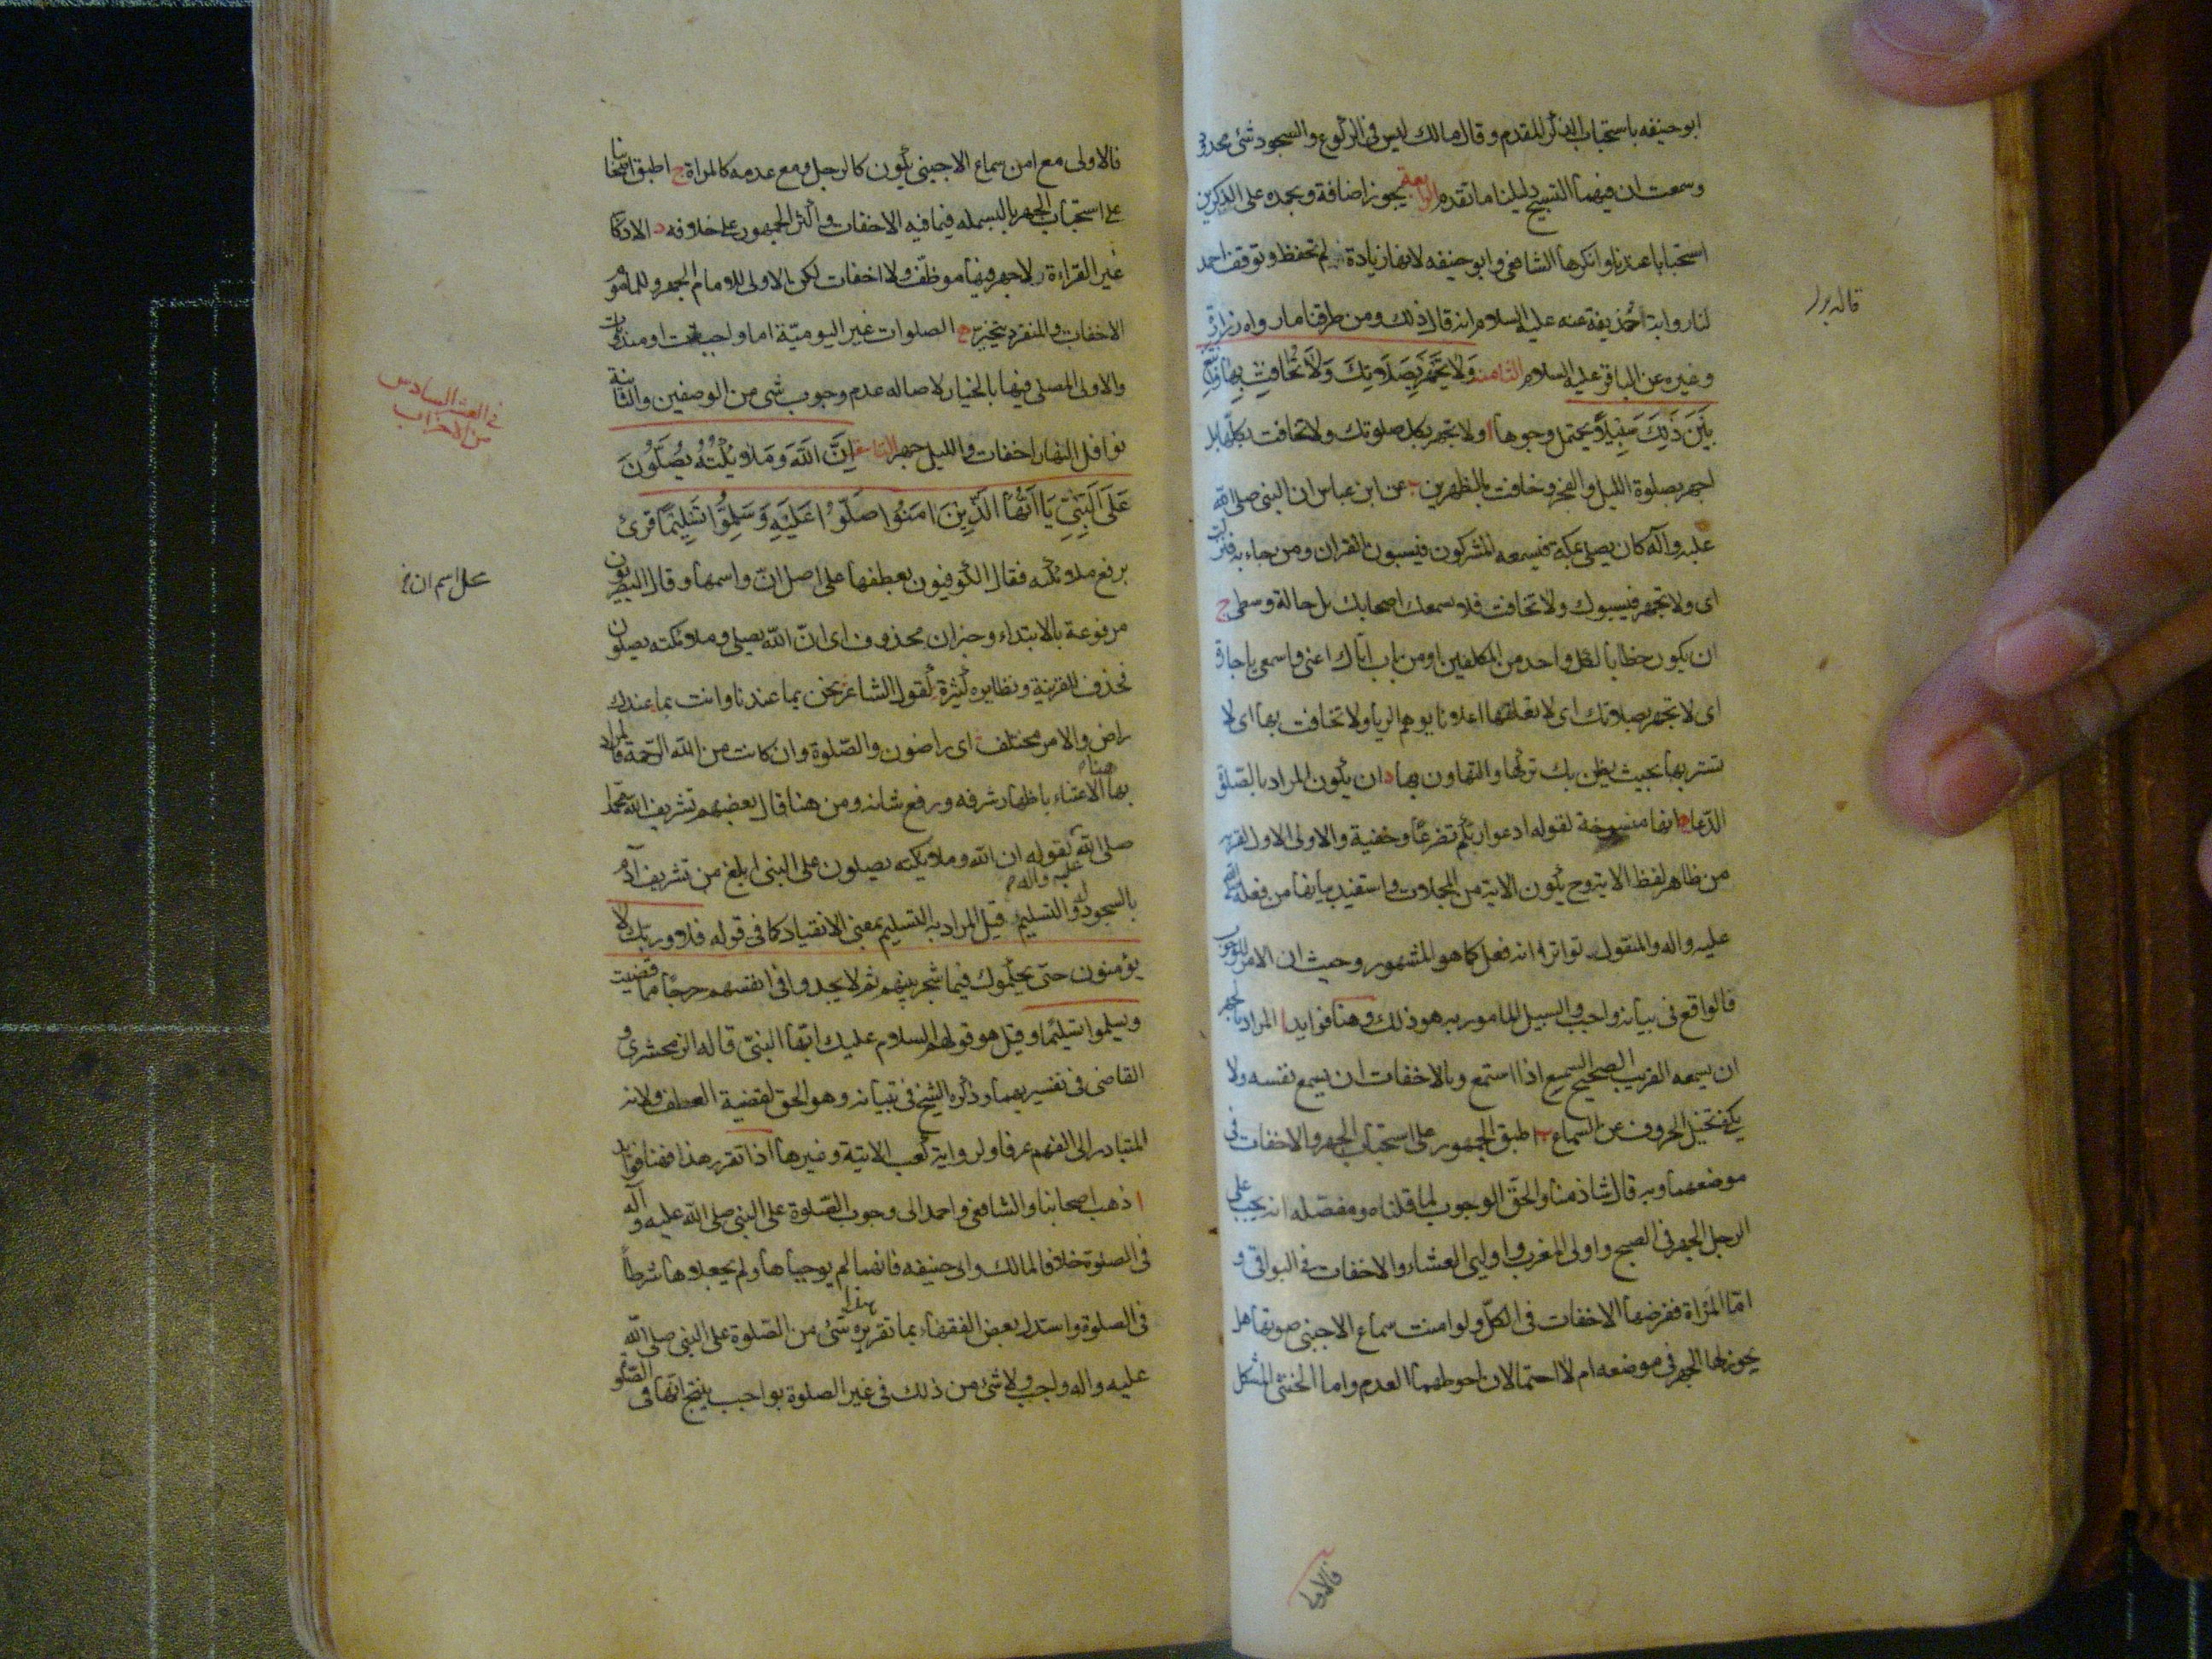 ابو حنيفه باستحباب الذكر المقدم وقال مالك ليس في الركوع والسجود شئ محدود
وسمعت ان فيهما التسبيح دليلنا ما تقدم الرابعة يجوز اضافة وبحمده على الذكرين
استحبابا عندنا وانكرها الشافعي وابو حنيفه لانها زيادة لم تحفظ وتوقف احمد
لنا رواية حذيفة عنه عليه السلام انه قال ذلك ومن طرقنا ما رواه زرارة
وغيره عن الباقر عليه السلام الثامنة وَلا تَجْهَرْ بِصَلَاتِكَ وَلَا تُخَافِتْ بِهَا وَابْتَغِ
بَيْنَ ذَلِكَ سَبِيلاً يحتمل وجوها ا ولا تجهر بكل صلوتك ولا تخافت بكلها بل
اجهر بصلوة الليل والفجر وخافت بالظهرين ب عن ابن عباس ان النبي صلى الله
عليه وآله كان يصلي بمكة فيسمعه المشركون فيسبون القران ومن جاء به فنزلت
اى ولا تجهر فيسبوك ولا تخافت فلا يسمعك اصحابك بل حالة وسطى ج
ان يكون خطابا لكل واحد من المكلفين او من باب اياك اعنى واسمعى يا جارة
اى لا تجهر بصلاتك اى لا تعلنها اعلانا يوهم الريا ولا تخافت بها اى لا
تستر بها بحيث يظن بك تركها والتهاون بها د ان يكون المراد بالصلوة
الدعا ه انها منسوخة لقوله ادعوا ربكم تضرعا وخفية والاولى الاول لقربه
من ظاهر لفظ الاية وح يكون الاية من المجملات واستفيد بيانها من فعله صلى الله
عليه واله والمنقول تواترا انه فعل كما هو المشهور وحيث ان الامر للوجوب
فالواقع في بيانه واجب والسبيل المامور به هو ذلك وهنا فوايد ا المراد بالجهر
ان يسمعه القريب الصحيح السميع اذا استمع وبالاخفات ان يسمع نفسه ولا
يكفي تخيل الحروف عن السماع ب اطبق الجمهور على استحباب الجهر والاخفات في
موضعهما وبه قال شاذ منا والحق الوجوب لما قلناه ومفصله انه يجب على
الرجل الجهر في الصبح واولى المغرب واوليى العشاء والاخفات في البواقى و
اما المراة ففرضها الاخفات في الكل ولو امنت سماع الاجنبي صوتها هل
يجوز لها الجهر في موضعه ام لا احتمالان احوطهما العدم واما الخنثى المشكل
فالاولى
فالاولى مع امن سماع الاجنبي يكون كالرجل ومع عدمه كالمراة ج اطبق اصحابنا
على استحباب الجهر بالبسمله فيما فيه الاخفات واكثر الجمهور على خلافه د الاذكار
غير القراءة لا جهر فيها موظف ولا اخفات لكن الاولى للامام الجهر وللماموم
الاخفات والمنفرد يتخير ه الصلوات غير اليومية اما واجبات او مندوبات
والاولى المصلى فيها بالخيار لاصاله عدم وجوب شى من الوصفين والثانية
في العشر السادس
من الاحزاب
نوافل النهار اخفات والليل جهر التاسعة اِنَّ اللّٰهَ وَمَلَائِكَتَهُ يُصَلُّونَ
عَلَى النَّبِيِّ يَا اَيُّهَا الَّذِينَ امَنُوا صَلُّوا عَلَيْهِ وَسَلِّمُوا تَسْلِيمًا قرئ
برفع ملائكته فقال الكوفيون بعطفها على اصل انّ واسمها وقال البصريون
على اسم ان خ
مرفوعة بالابتداء وخبر ان محذوف اى انّ الله يصلى وملائكته يصلون
فحذف للقرينة ونظايره كثيرة كقول الشاعر نحن بما عندنا وانت بما عندك
راض والامر مختلف اى راضون والصلوة وان كانت من الله الرحمة فالمراد
بها هنا الاعتناء باظهار شرفه ورفع شانه ومن هنا قال بعضهم تشريف الله محمدا
صلى الله عليه واله بقوله ان الله وملائكته يصلون على النبي ابلغ من تشريف آدم
بالسجود له والتسليم قيل المراد به التسليم بمعنى الانقياد كما في قوله فلا وربك لا
يؤمنون حتى يحكموك فيما شجر بينهم ثم لا يجدوا في انفسهم حرجا مما قضيت
ويسلموا تسليما وقيل هو قولهم السلام عليك ايها النبي قاله الزمخشرى و
القاضى في تفسيريهما وذكره الشيخ في تبيانه وهو الحق لقضية العطف ولانه
المتبادر الى الفهم عرفا ولرواية كعب الاتية وغيرها اذا تقرر هذا فهنا فوايد
ا ذهب اصحابنا والشافعي واحمد الى وجوب الصلوة على النبي صلى الله عليه وآله
في الصلوة خلافا لمالك وابى حنيفه فانهما لم يوجباها ولم يجعلاها شرطا
في الصلوة واستدل بعض الفقهاء بما تقريره شئ من الصلوة على النبي صلى الله
عليه واله واجب ولا شئ من ذلك في غير الصلوة بواجب ينتج انها في الصلوة